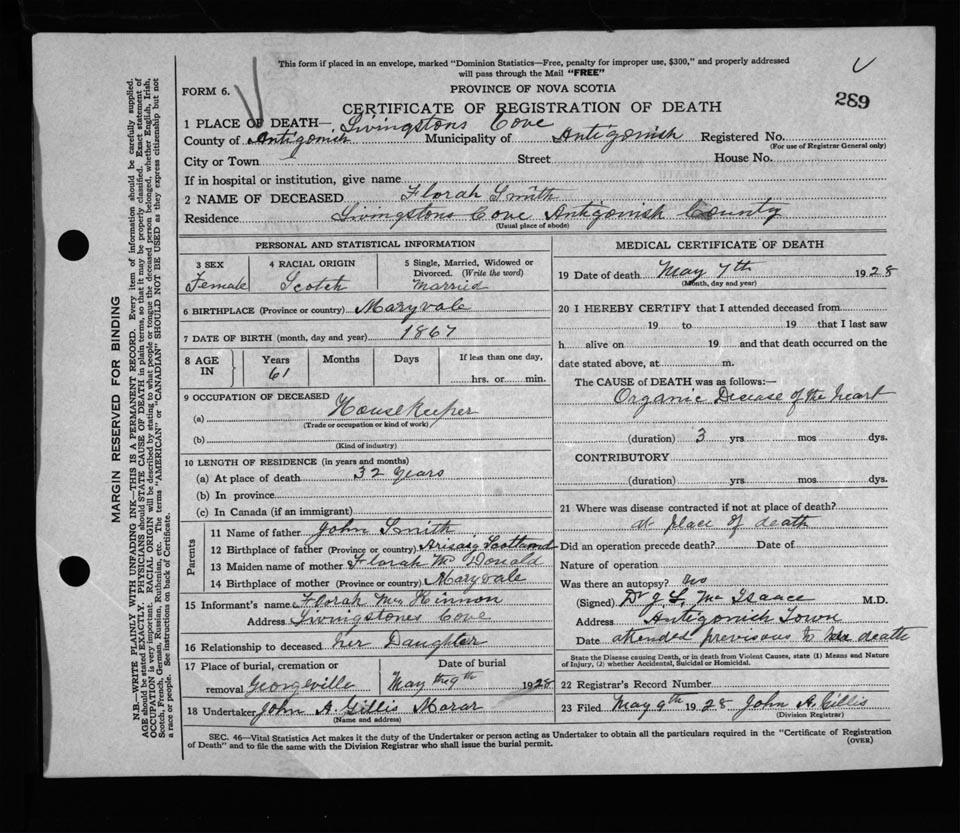 This form if placed in an envelope, marked "Dominion Statistics—Free, penalty for improper use, $300," and properly addressed
will pass through the Mail "FREE"
FORM 6.
PROVINCE OF NOVA SCOTIA
289
CERTIFICATE OF REGISTRATION OF DEATH
1 PLACE OF DEATH— Livingstons Cove
County of Antigonish Municipality of Antigonish Registered No.
(For use of Registrar General only)
City or Town Street House No.
If in hospital or institution, give name
2 NAME OF DECEASED Florah Smith
Residence Livingstons Cove Antigonish County
(Usual place of abode)
PERSONAL AND STATISTICAL INFORMATION
3 SEX
Female
4 RACIAL ORIGIN
Scotch
5 Single, Married, Widowed or
Divorced. (Write the word)
Married
6 BIRTHPLACE (Province or country) Maryvale
7 DATE OF BIRTH (month, day and year) 1867
8 AGE IN
Years Months Days If less than one day,
61 hrs. or min.
9 OCCUPATION OF DECEASED
(a) Housekeeper
(Trade or occupation or kind of work)
(b)
(Kind of industry)
10 LENGTH OF RESIDENCE (in years and months)
(a) At place of death 32 years
(b) In province
(c) In Canada (if an immigrant)
Parents
11 Name of father John Smith
12 Birthplace of father (Province or country) Arisaig Scotland
13 Maiden name of mother Florah McDonald
14 Birthplace of mother (Province or country) Maryvale
15 Informant's name Florah McKinnon
Address Livingstones Cove
16 Relationship to deceased her Daughter
17 Place of burial, cremation or Date of burial
removal Georgeville May the 9th 1928
18 Undertaker John A. Gillis Morar
(Name and address)
MEDICAL CERTIFICATE OF DEATH
19 Date of death May 7th 1928
(Month, day and year)
20 I HEREBY CERTIFY that I attended deceased from
19 to 19 that I last saw
h alive on 19 and that death occurred on the
date stated above, at m.
The CAUSE of DEATH was as follows:—
Organic Decease of the heart
(duration) 3 yrs mos dys.
CONTRIBUTORY
(duration) yrs. mos dys.
21 Where was disease contracted if not at place of death?
at place of death
Did an operation precede death? Date of
Nature of operation
Was there an autopsy? no
(Signed) Dr J. L. McIsaac M.D.
Address Antigonish Town
Date attended previsous to death
State the Disease causing Death, or in death from Violent Causes, state (1) Means and Nature
of Injury, (2) whether Accidental, Suicidal or Homicidal.
22 Registrar's Record Number
23 Filed May 9th 1928 John A. Gillis
(Division Registrar)
SEC. 46—Vital Statistics Act makes it the duty of the Undertaker or person acting as Undertaker to obtain all the particulars required in the "Certificate of Registration
of Death" and to file the same with the Division Registrar who shall issue the burial permit.
(OVER)
MARGIN RESERVED FOR BINDING
N.B.—WRITE PLAINLY WITH UNFADING INK—THIS IS A PERMANENT RECORD. Every item of information should be carefully supplied.
AGE should be stated EXACTLY. PHYSICIANS should STATE CAUSE OF DEATH in plain terms, so that it may be properly classified. Exact statement of
OCCUPATION is very important. RACIAL ORIGIN will be described by stating to what people or tongue the deceased person belonged, whether English, Irish,
Scotch, French, German, Russian, Ruthenian, etc. The terms "AMERICAN" or "CANADIAN" SHOULD NOT BE USED as they express citizenship but not
a race or people. See instructions on back of Certificate.